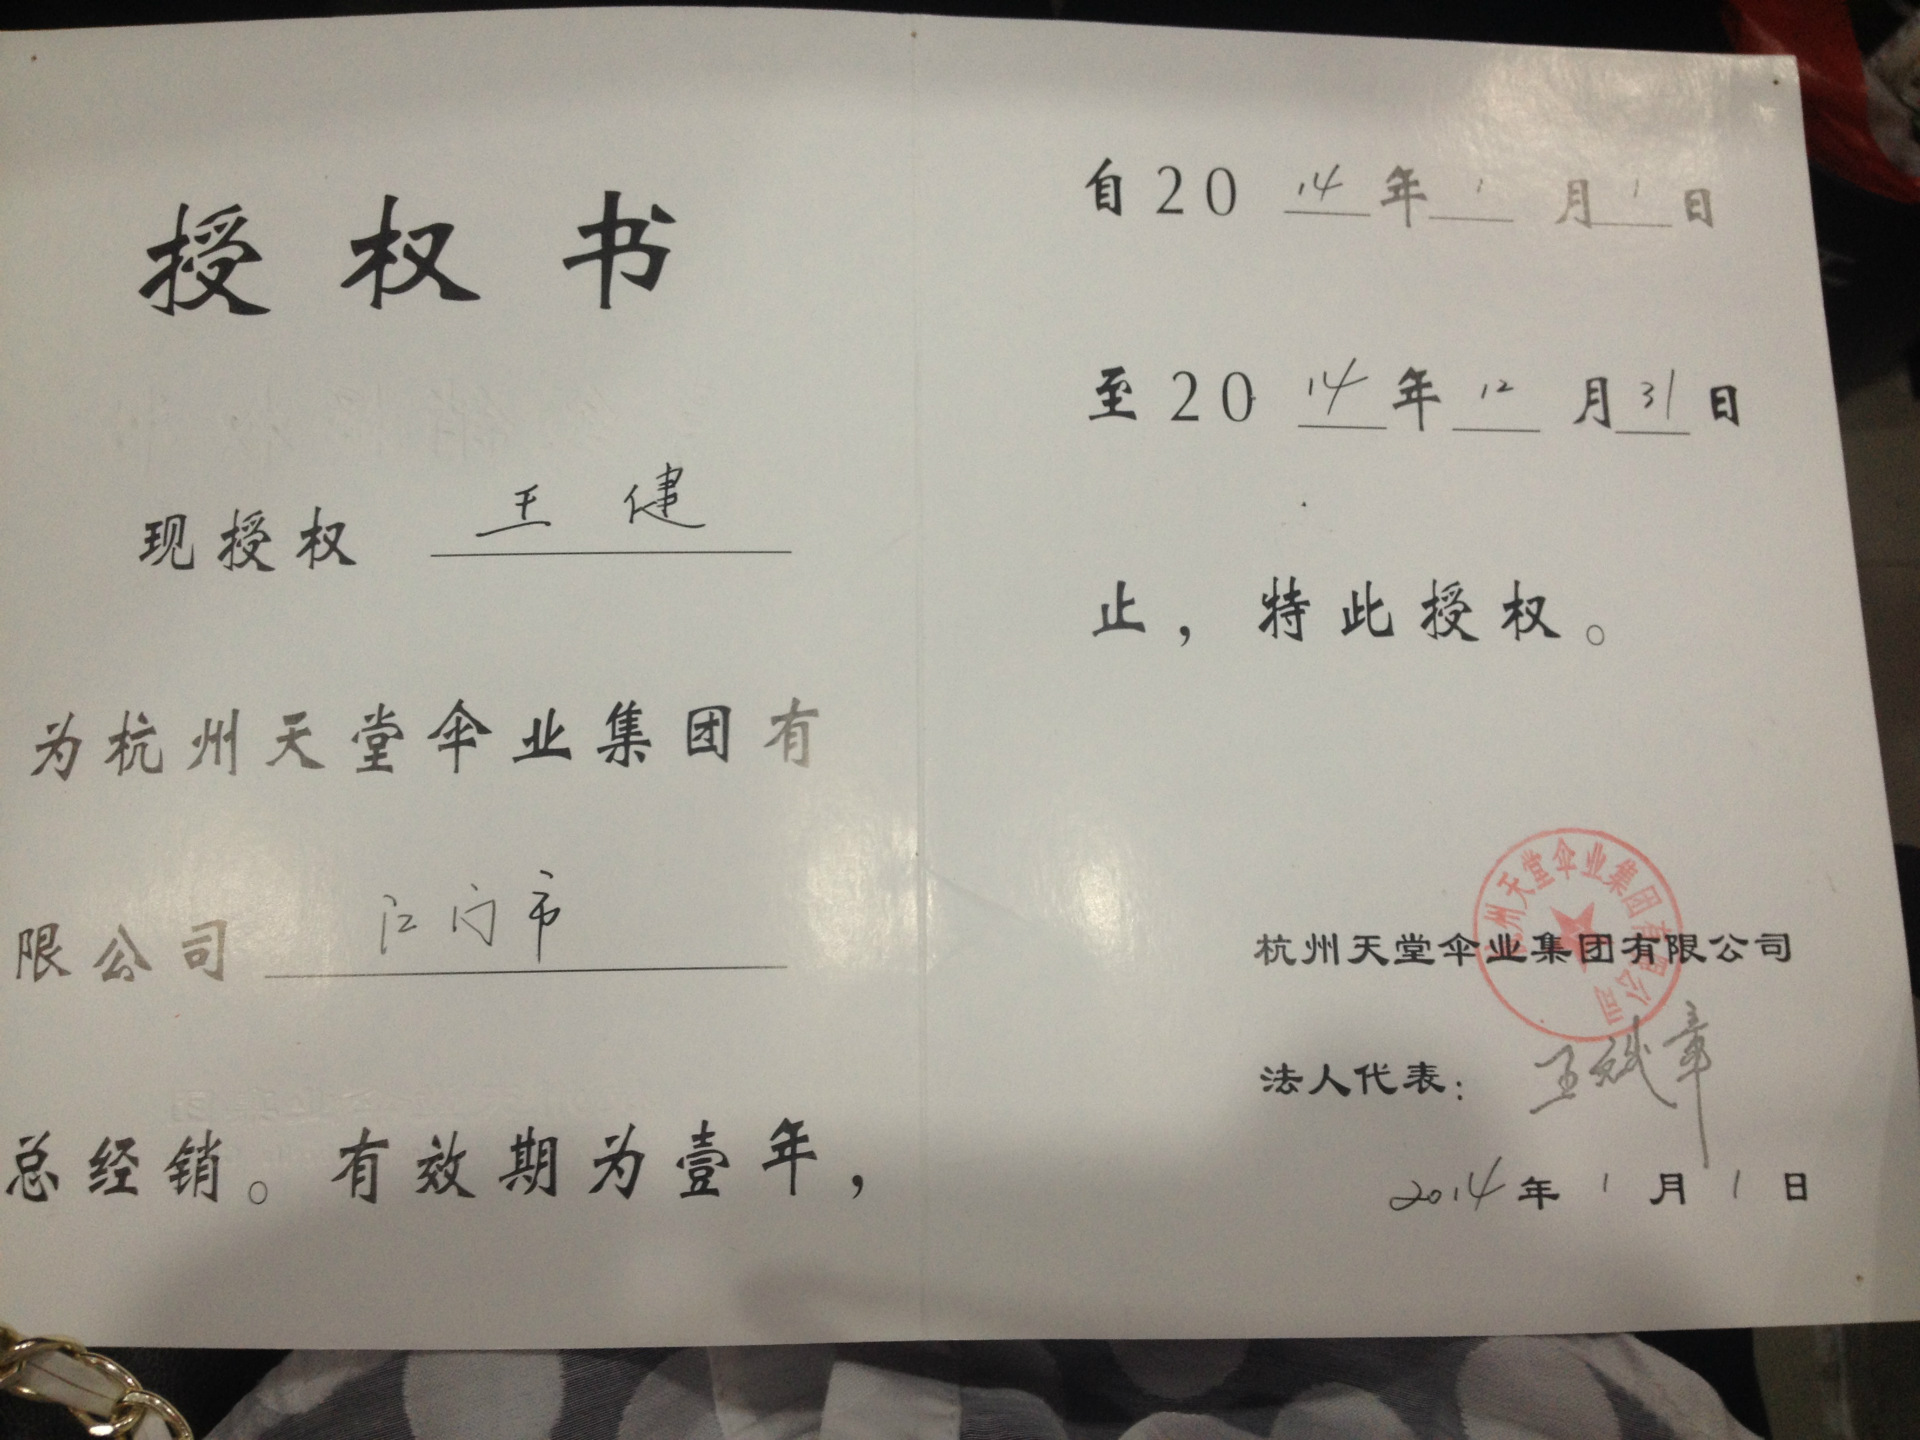 授权书
现授权 王健
为杭州天堂伞业集团有
限公司 江门市
总经销。有效期为壹年，
自2014年1月1日
至2014年12月31日
止，特此授权。
杭州天堂伞业集团有限公司
杭州天堂伞业集团有限公司
法人代表：王斌章
2014年1月1日